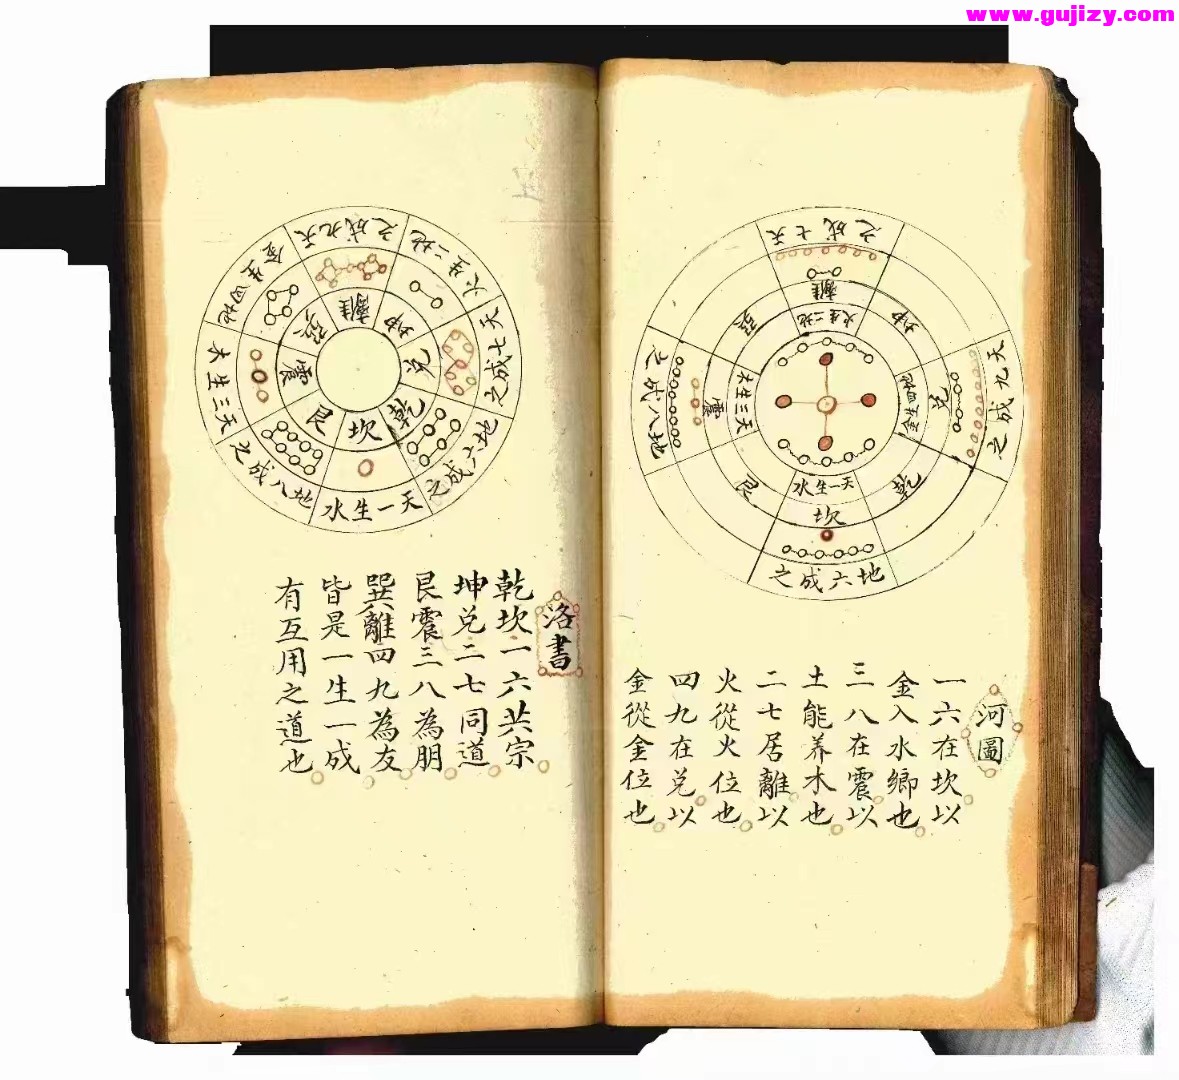 www.gujizy.com
之成七天
離
火生二地
坤
巽
之成九天
兌
金生四地
乾
水生一天
坎
之成六地
艮
震
木生三天
之成八地
河圖
一六在坎以
金入水鄉也
三八在震以
土能养木也
二七居離以
火從火位也
四九在兌以
金從金位也
之成九天
火生二地
之成七天
之成六地
水生一天
之成八地
木生三天
金生四地
離
坤
兌
乾
坎
艮
震
巽
洛書
乾坎一六共宗
坤兌二七同道
艮震三八為朋
巽離四九為友
皆是一生一成
有互用之道也